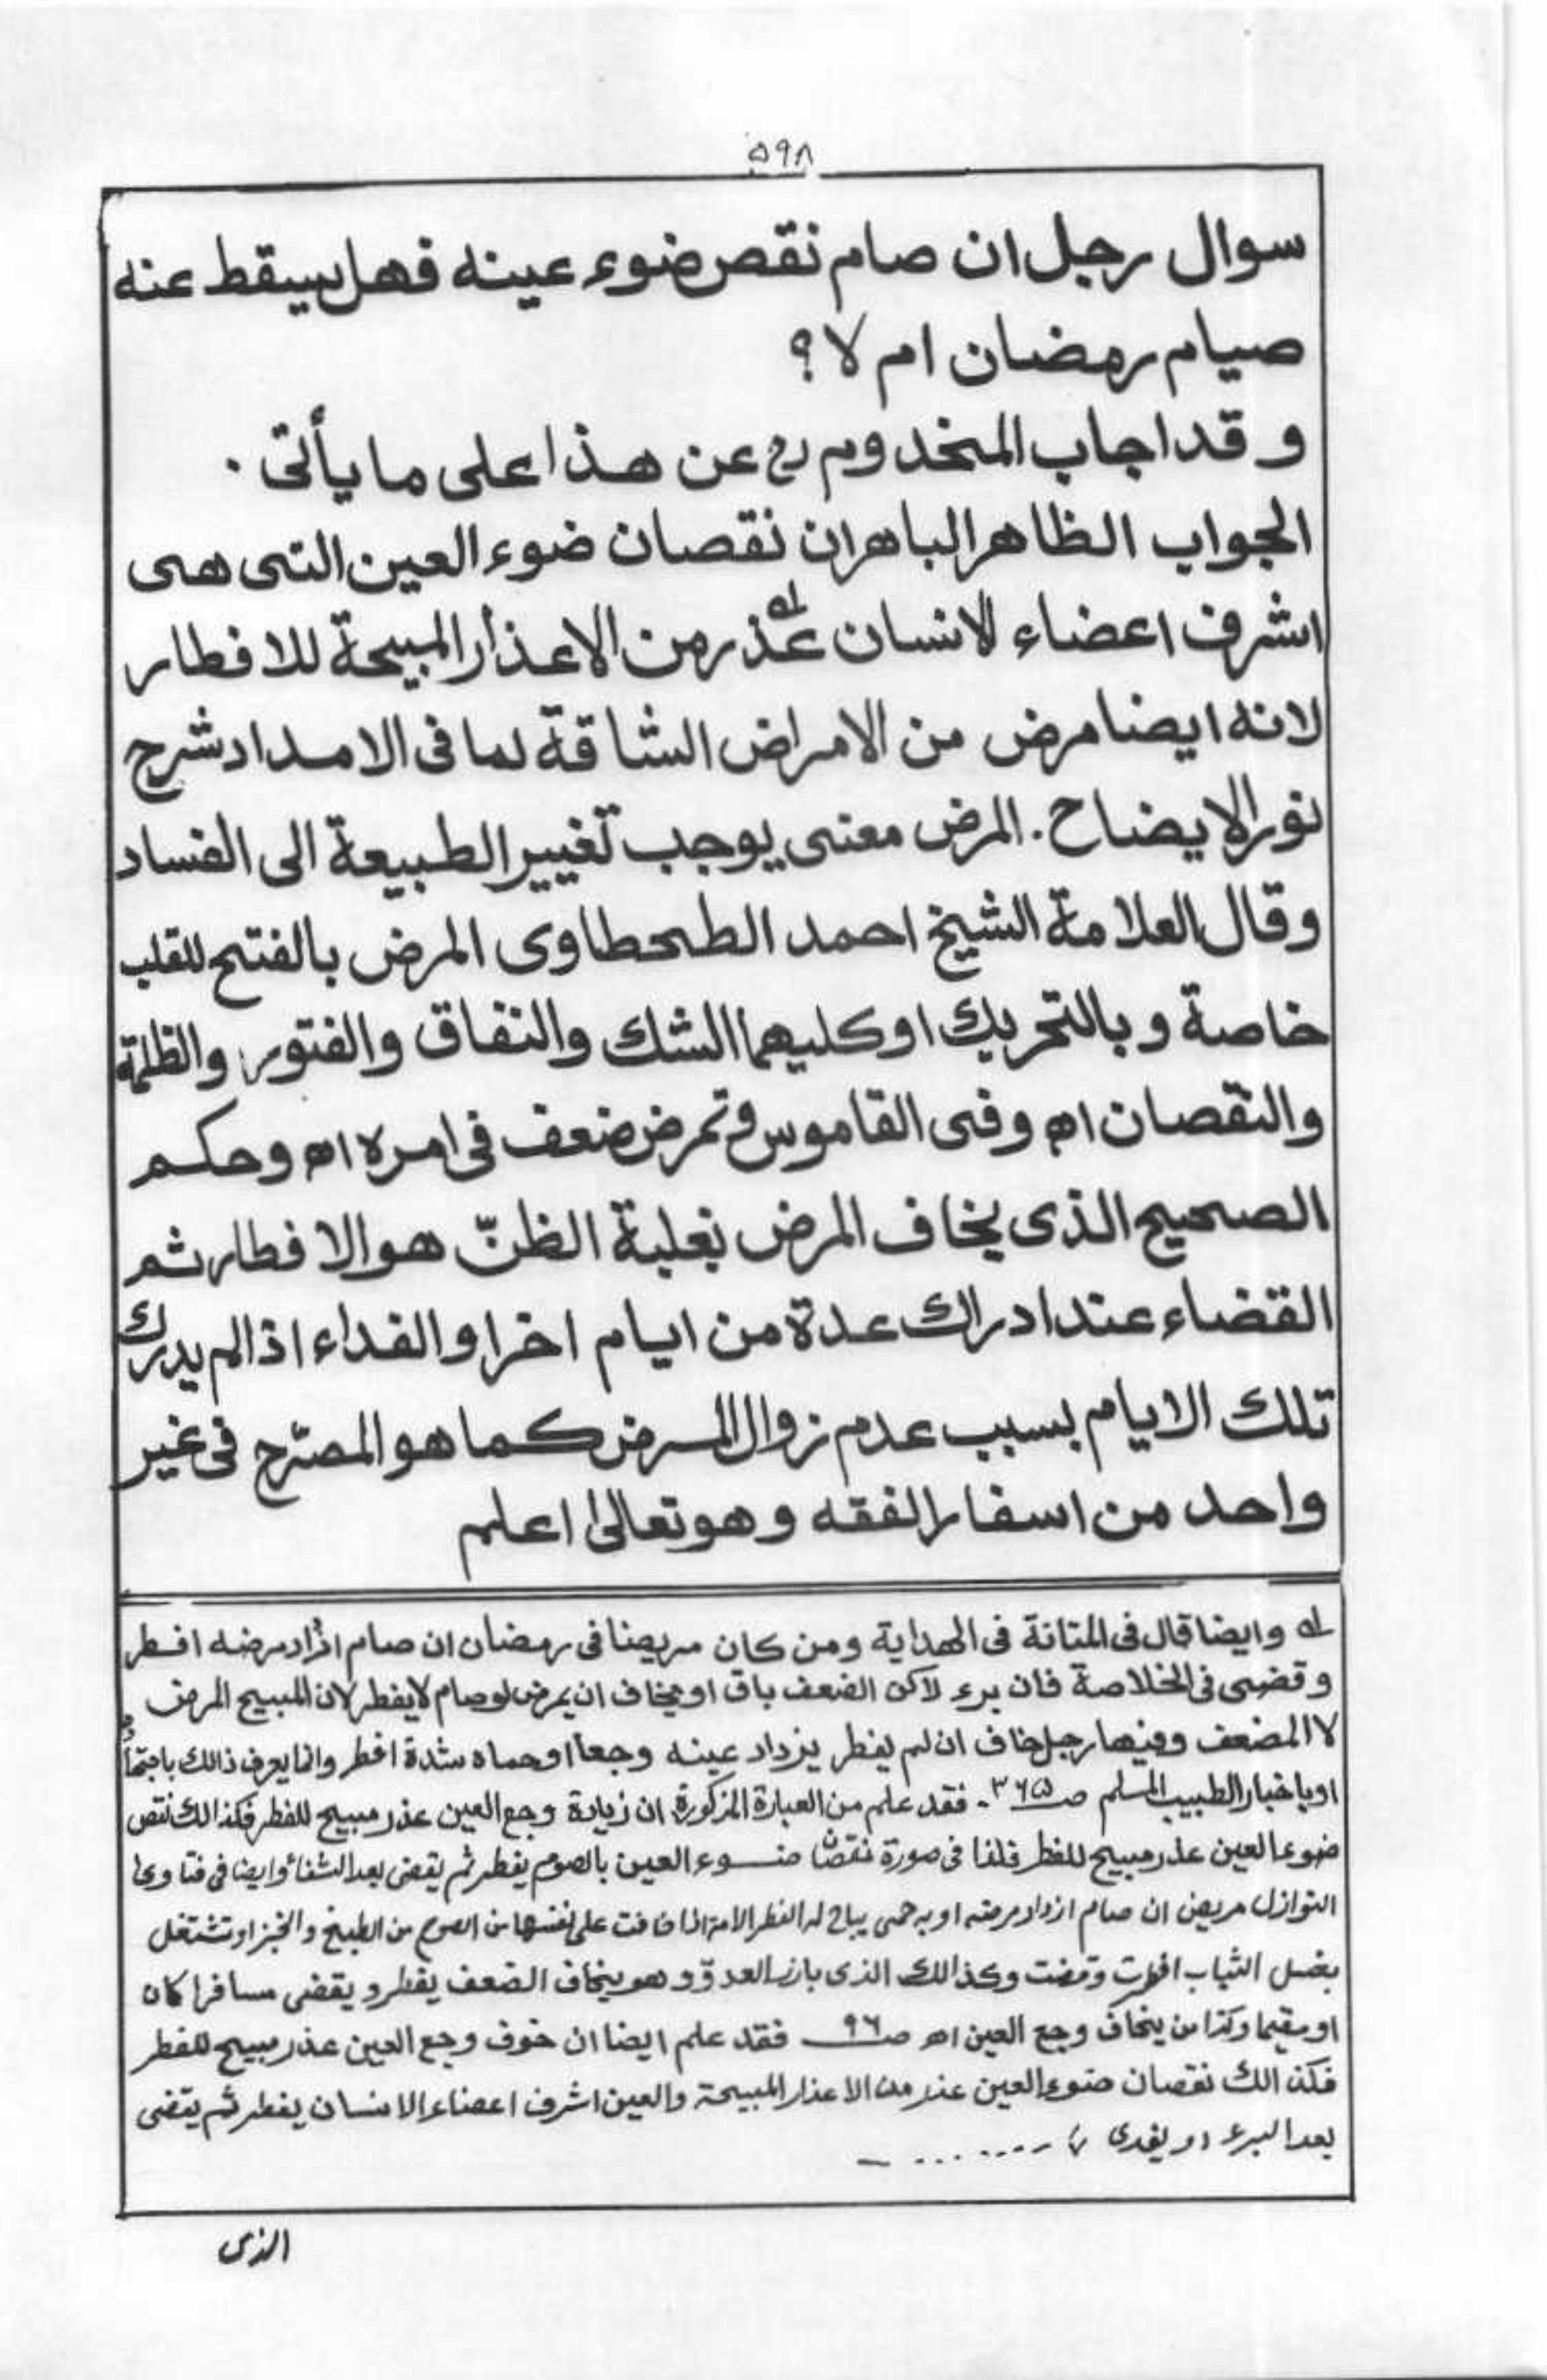 ۵۹۸
سوال رجل ان صام نقص ضوء عينه فهل يسقط عنه
صيام رمضان ام لا ؟
و قد اجاب المخدوم رح عن هذا على ما يأتى .
الجواب الظاهر الباهر ان نقصان ضوء العين التى هى
اشرف اعضاء الانسان عذر من الاعذار المبيحة للافطار
لانه ايضا مرض من الامراض الشاقة لما فى الامداد شرح
نور الايضاح . المرض معنى يوجب تغيير الطبيعة الى الفساد
وقال العلامة الشيخ احمد الطحطاوى المرض بالفتح للقلب
خاصة و بالتحريك او كليهما الشك والنفاق والفتور والظلمة
والنقصان اھ وفى القاموس وتمرض ضعف فى امره اھ وحكم
الصحيح الذى يخاف المرض بغلبة الظنّ هو الافطار ثم
القضاء عند ادراك عدة من ايام اخر او الفداء اذا لم يدرك
تلك الايام بسبب عدم زوال المرض كما هو المصرّح فى غير
واحد من اسفار الفقه وهو تعالىٰ اعلم
لہ وايضا قال فى المتانة فى الهداية ومن كان مريضا فى رمضان ان صام ازداد مرضه افطر
وقضى فى الخلاصة فان برء لاكن الضعف باق او يخاف ان يمرض لو صام لا يفطر لان المبيح المرض
لا المضعف وفيها رجل خاف ان لم يفطر يزداد عينه وجعا او حماه شدة افطر وانما يعرف ذالك باجتهاده
او باخبار الطبيب المسلم صـ ۳۶۵ . فقد علم من العبارة المذكورة ان زيادة وجع العين عذر مبيح للفطر فكذالك نقص
ضوء العين عذر مبيح للفطر قلنا فى صورة نقصان ضوء العين بالصوم يفطر ثم يقضى بعد الشفاء وايضا فى فتاوى
النوازل مريض ان صام ازداد مرضه او به حمى يباح له الفطر الامة اذا خافت على نفسها من الصوم من الطبخ والخبز او تشتغل
بغسل الثياب افطرت وقضت وكذالك الذى بارز العدوّ وهو يخاف الضعف يفطر و يقضى مسافرا كان
او مقيما وكذا من يخاف وجع العين اھ صـ ۹۶ فقد علم ايضا ان خوف وجع العين عذر مبيح للفطر
فكذالك نقصان ضوء العين عذر من الاعذار المبيحة والعين اشرف اعضاء الانسان يفطر ثم يقضى
بعد البرء او يفدى
الذى